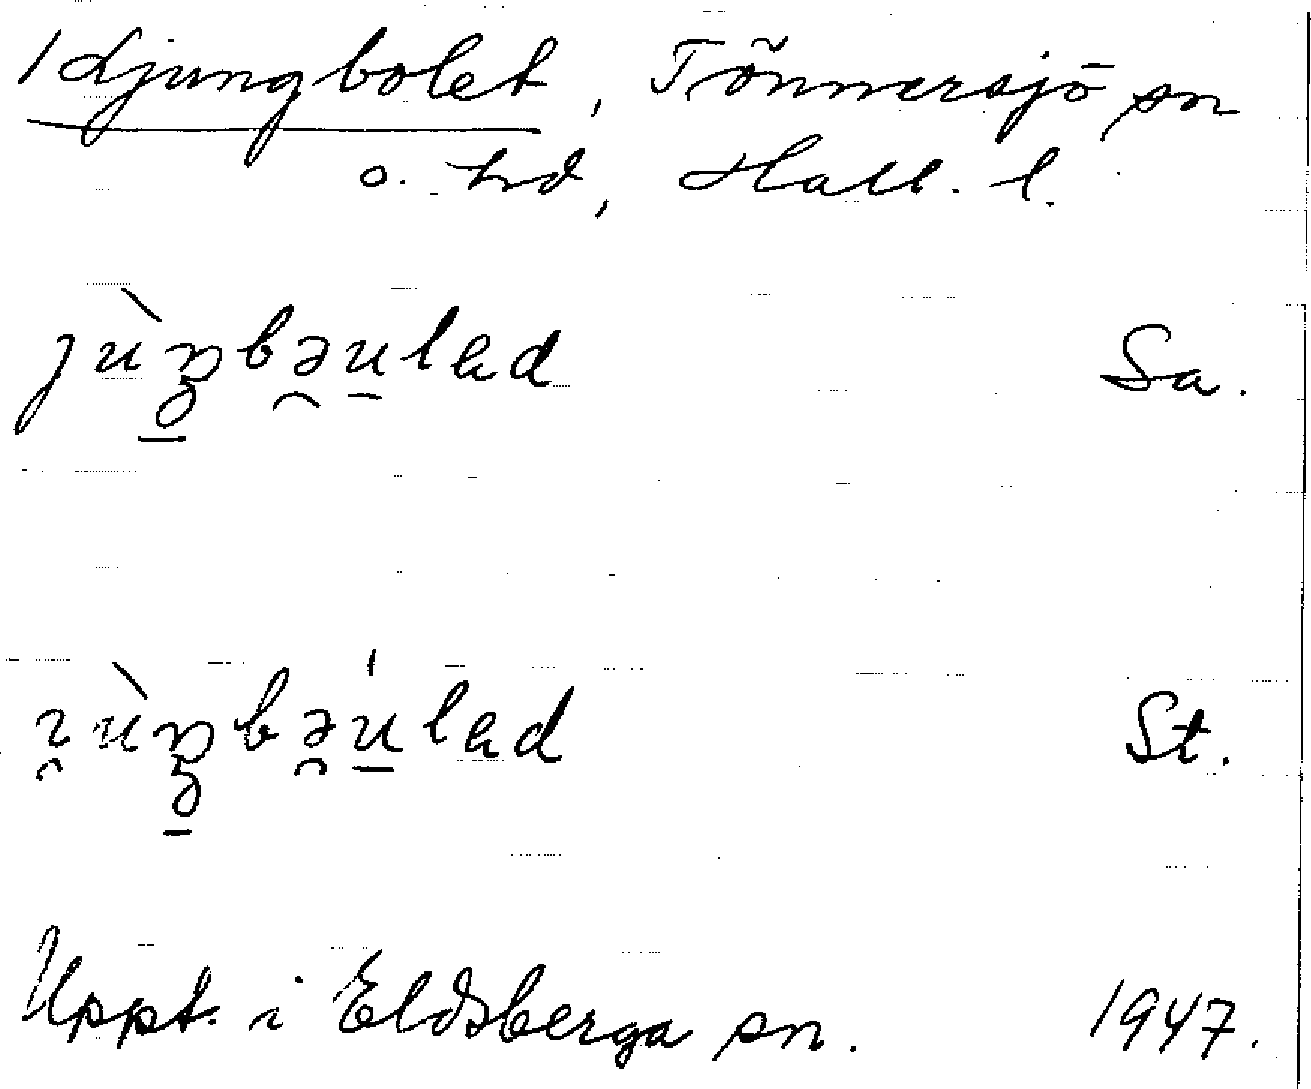 / Ljungbolet, Tönnersjö sn
o. hd, Hall. l.
jùŋbəu̠lad Sa.
ɿùŋbəu̠lad St.
Uppt. i Eldsberga sn. 1947.